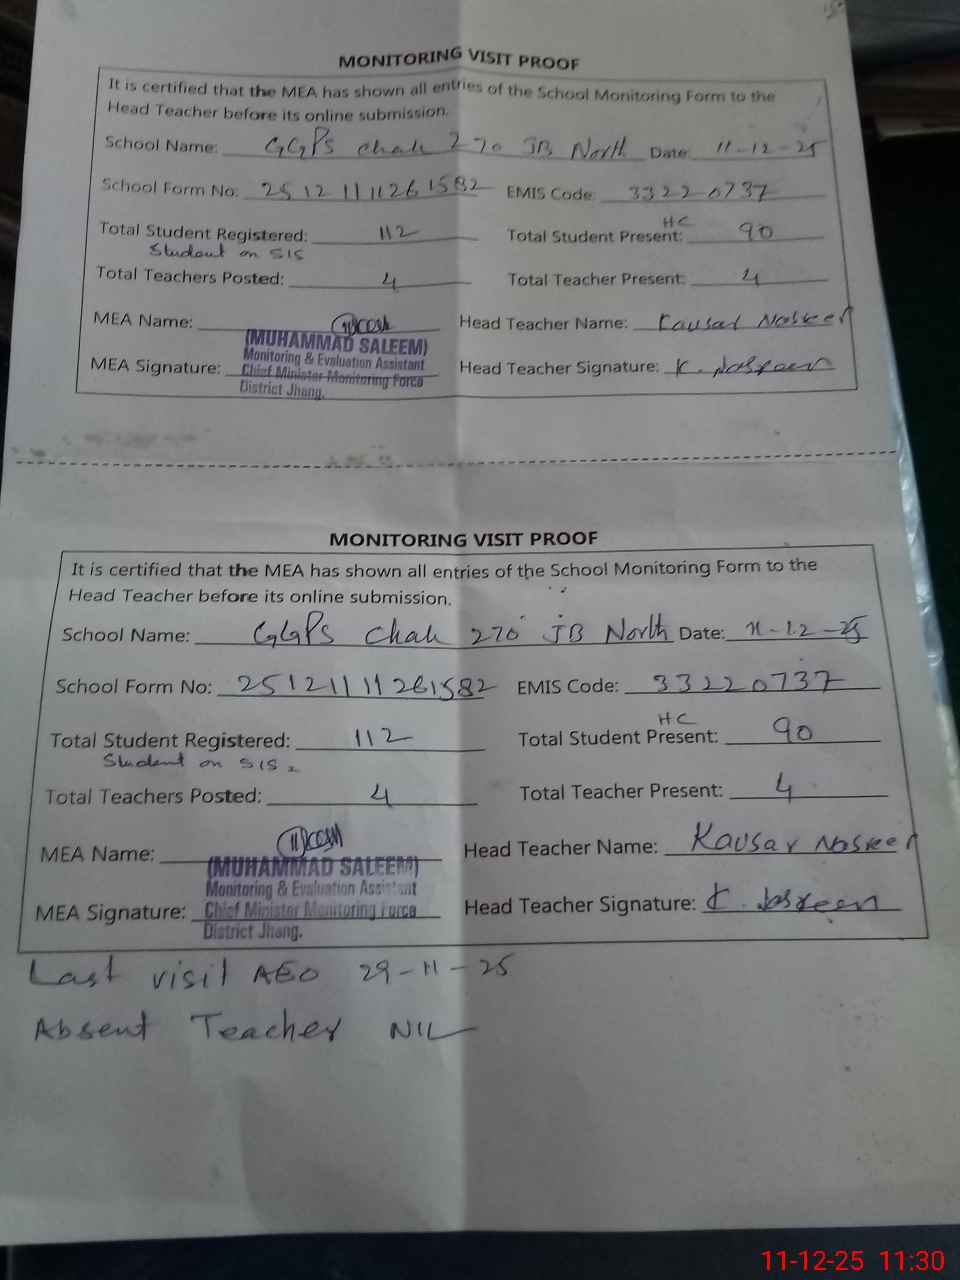 MONITORING VISIT PROOF
It is certified that the MEA has shown all entries of the School Monitoring Form to the
Head Teacher before its online submission.
School Name: GGPS Chak 270 JB North Date: 11-12-25
School Form No: 2512111126 1582 EMIS Code: 33220737
HC
Total Student Registered: 112 Total Student Present: 90
Student on SIS
Total Teachers Posted: 4 Total Teacher Present: 4
MEA Name: Head Teacher Name: Kausar Nasreen
(MUHAMMAD SALEEM)
Monitoring & Evaluation Assistant
MEA Signature: Chief Minister Monitoring Force Head Teacher Signature: K. Nasreen
District Jhang.
MONITORING VISIT PROOF
It is certified that the MEA has shown all entries of the School Monitoring Form to the
Head Teacher before its online submission.
School Name: GGPS Chak 270 JB North Date: 11-12-25
School Form No: 25121111261582 EMIS Code: 33220737
HC
Total Student Registered: 112 Total Student Present: 90
Student on SIS
Total Teachers Posted: 4 Total Teacher Present: 4
MEA Name: Head Teacher Name: Kausar Nasreen
(MUHAMMAD SALEEM)
Monitoring & Evaluation Assistant
MEA Signature: Chief Minister Monitoring Force Head Teacher Signature: K. Nasreen
District Jhang.
Last visit AEO 29-11-25
Absent Teacher NIL
11-12-25 11:30